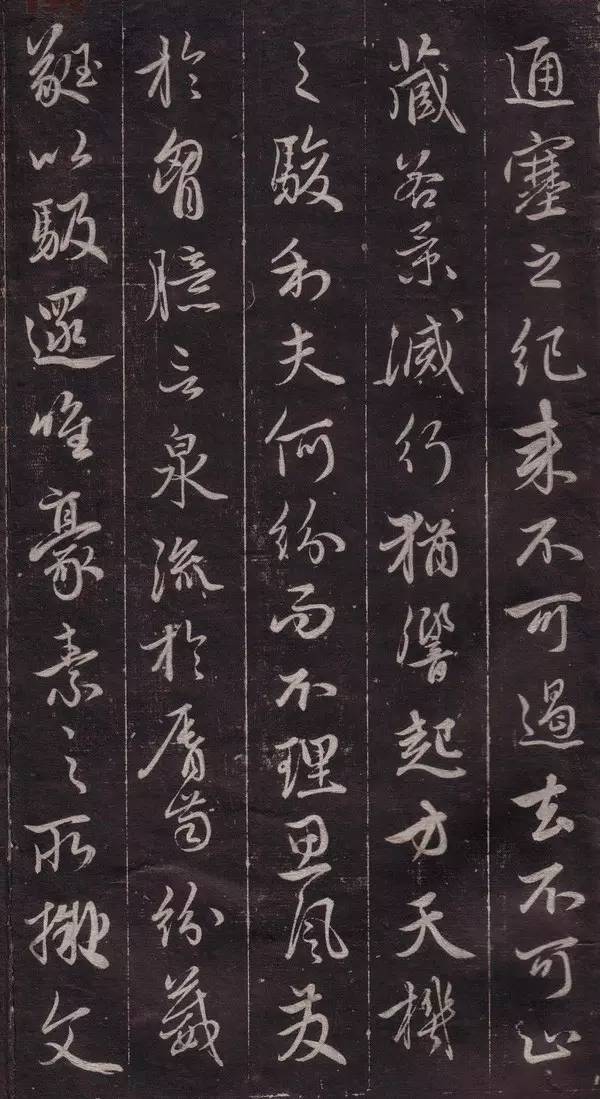 通塞之紀来不可遏去不可止
藏若景滅行猶響起方天機
之駿利夫何紛而不理思風發
於胷臆言泉流於脣齒紛葳
蕤以馺遝唯豪素之所擬文